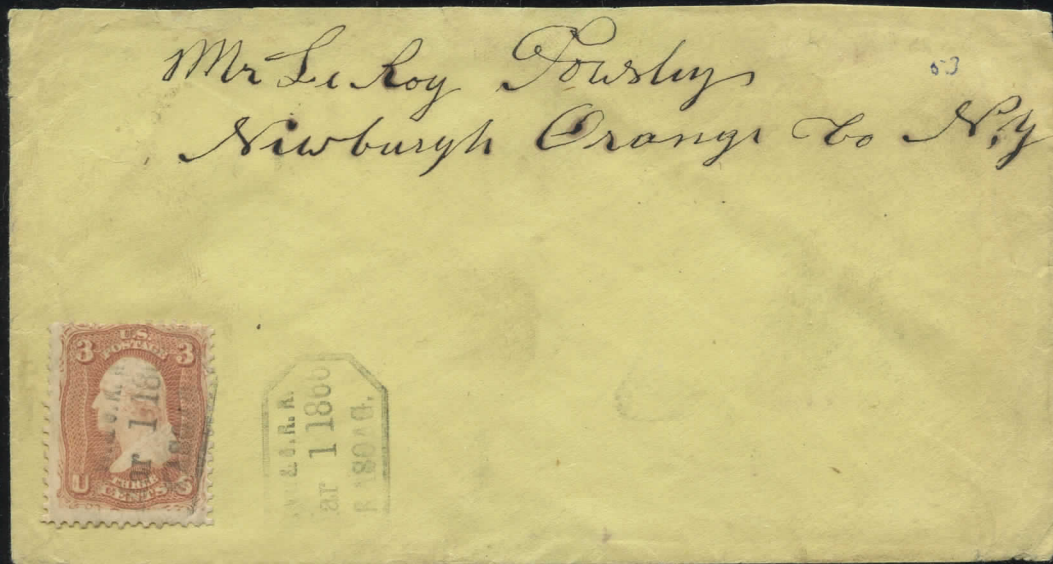 Mr Le Roy Powsly
Newburgh Orange Co N.Y
53
3 U.S. 3
POSTAGE
U THREE S
CENTS
ar 1 18
& O. R. R.
ar 1 1866